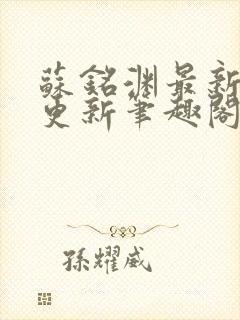 蘇銘淵最新
更新筆趣閣
孫耀威